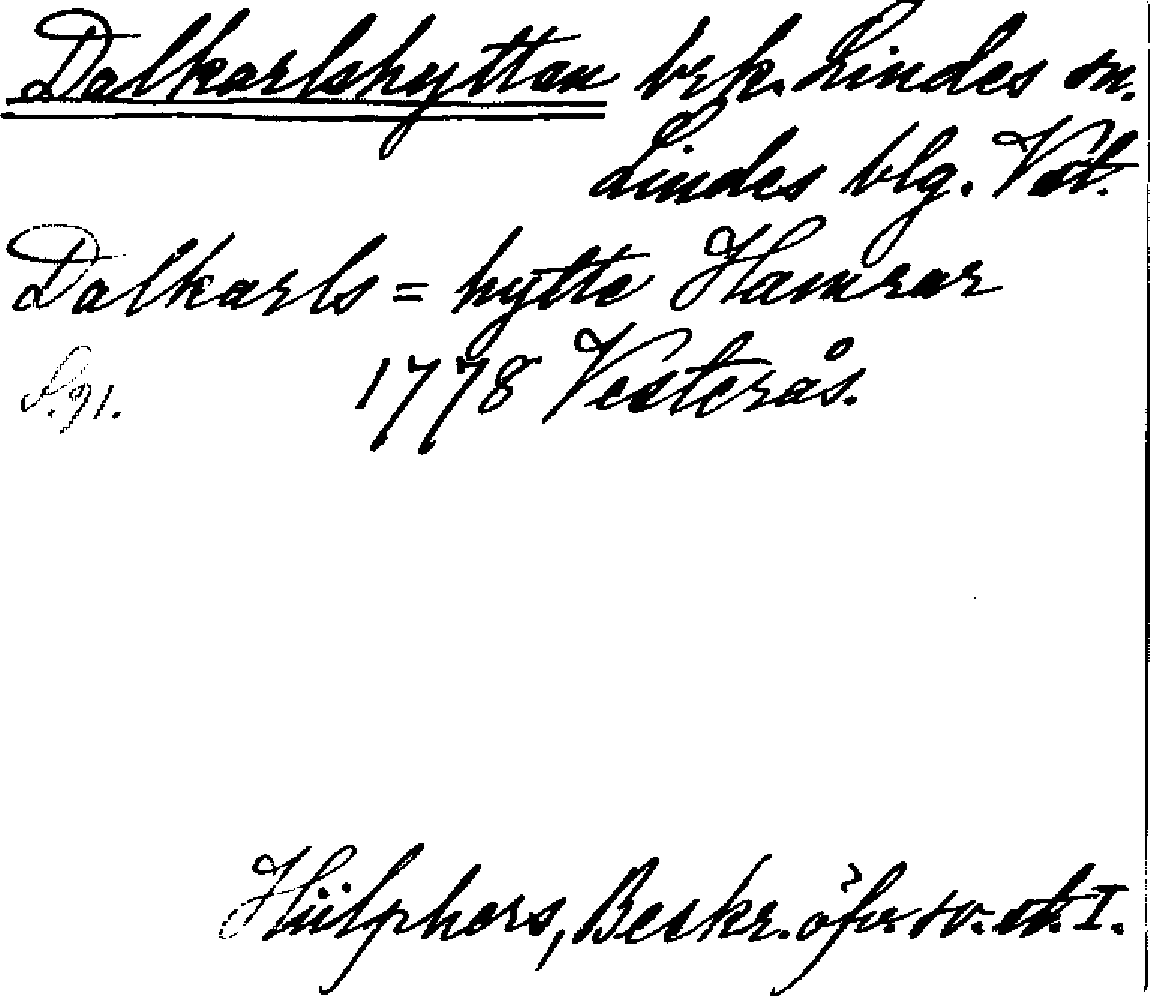 Dalkarlshyttan brk. Lindes sn.
Lindes blg. Vstl.
Dalkarls=hytte Hamrar
S. 91. 1778 Vesterås.
Hülphers, Beskr. öfv. sv. st. I.